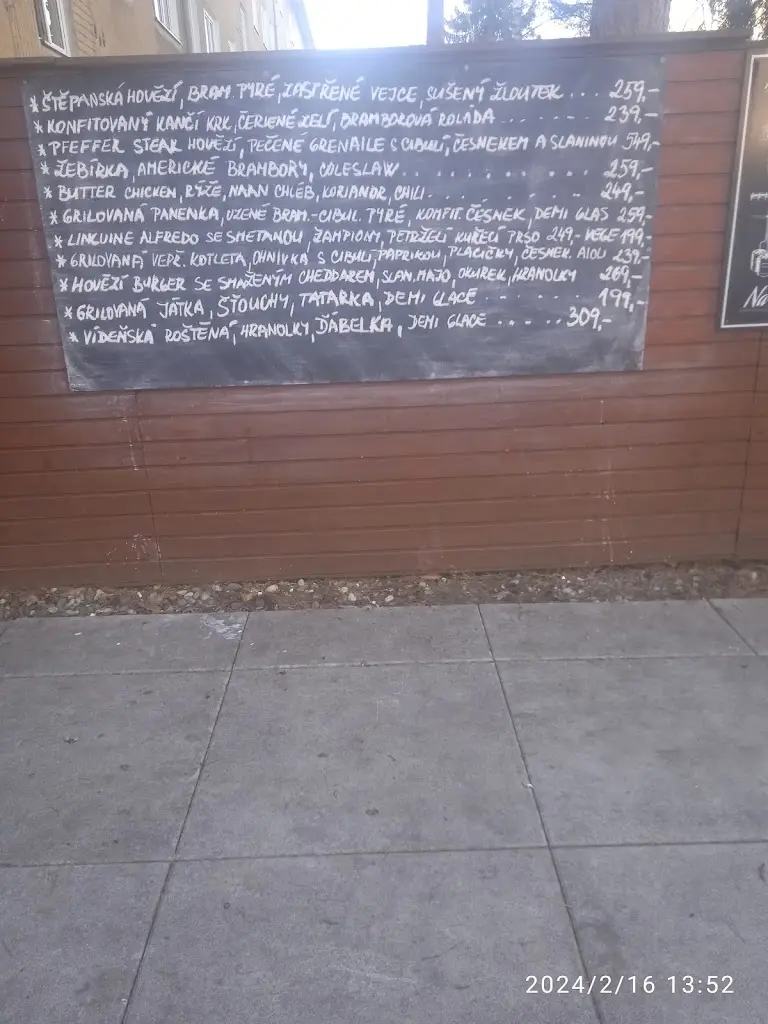 * ŠTĚPANSKÁ HOVĚZÍ, BRAM. PYRÉ, ZASTŘENÉ VEJCE, SUŠENÝ ŽLOUTEK ... 259,-
* KONFITOVANÝ KANČÍ KRK, ČERVENÉ ZELÍ, BRAMBOROVÁ ROLÁDA ........ 239,-
* PFEFFER STEAK HOVĚZÍ, PEČENÉ GRENAILE S CIBULÍ, ČESNEKEM A SLANINOU 549,-
* ŽEBÍRKA, AMERICKÉ BRAMBORY, COLESLAW ............ 259,-
* BUTTER CHICKEN, RÝŽE, NAAN CHLÉB, KORIANDR, CHILI .......... 249,-
* GRILOVANÁ PANENKA, UZENÉ BRAM.-CIBUL. PYRÉ, KONFIT. ČESNEK, DEMI GLAS 259,-
* LINGUINE ALFREDO SE SMETANOU, ŽAMPIONY, PETRŽELÍ KUŘECÍ PRSO 249,- VEGE 199,-
* GRILOVANÁ VEPŘ. KOTLETA, OHNIVKA S CIBULÍ, PAPRIKOU, PLACIČKY, ČESNEK. AIOLI 239,-
* HOVĚZÍ BURGER SE SMAŽENÝM CHEDDAREM, SLAN. MAJO, OKUREK, HRANOLKY 269,-
* GRILOVANÁ JÁTKA, ŠŤOUCHY, TATARKA, DEMI GLACE ..... 199,-
* VÍDEŇSKÁ ROŠTĚNÁ, HRANOLKY, ĎÁBELKA, DEMI GLACE ..... 309,-
Na
2024/2/16 13:52